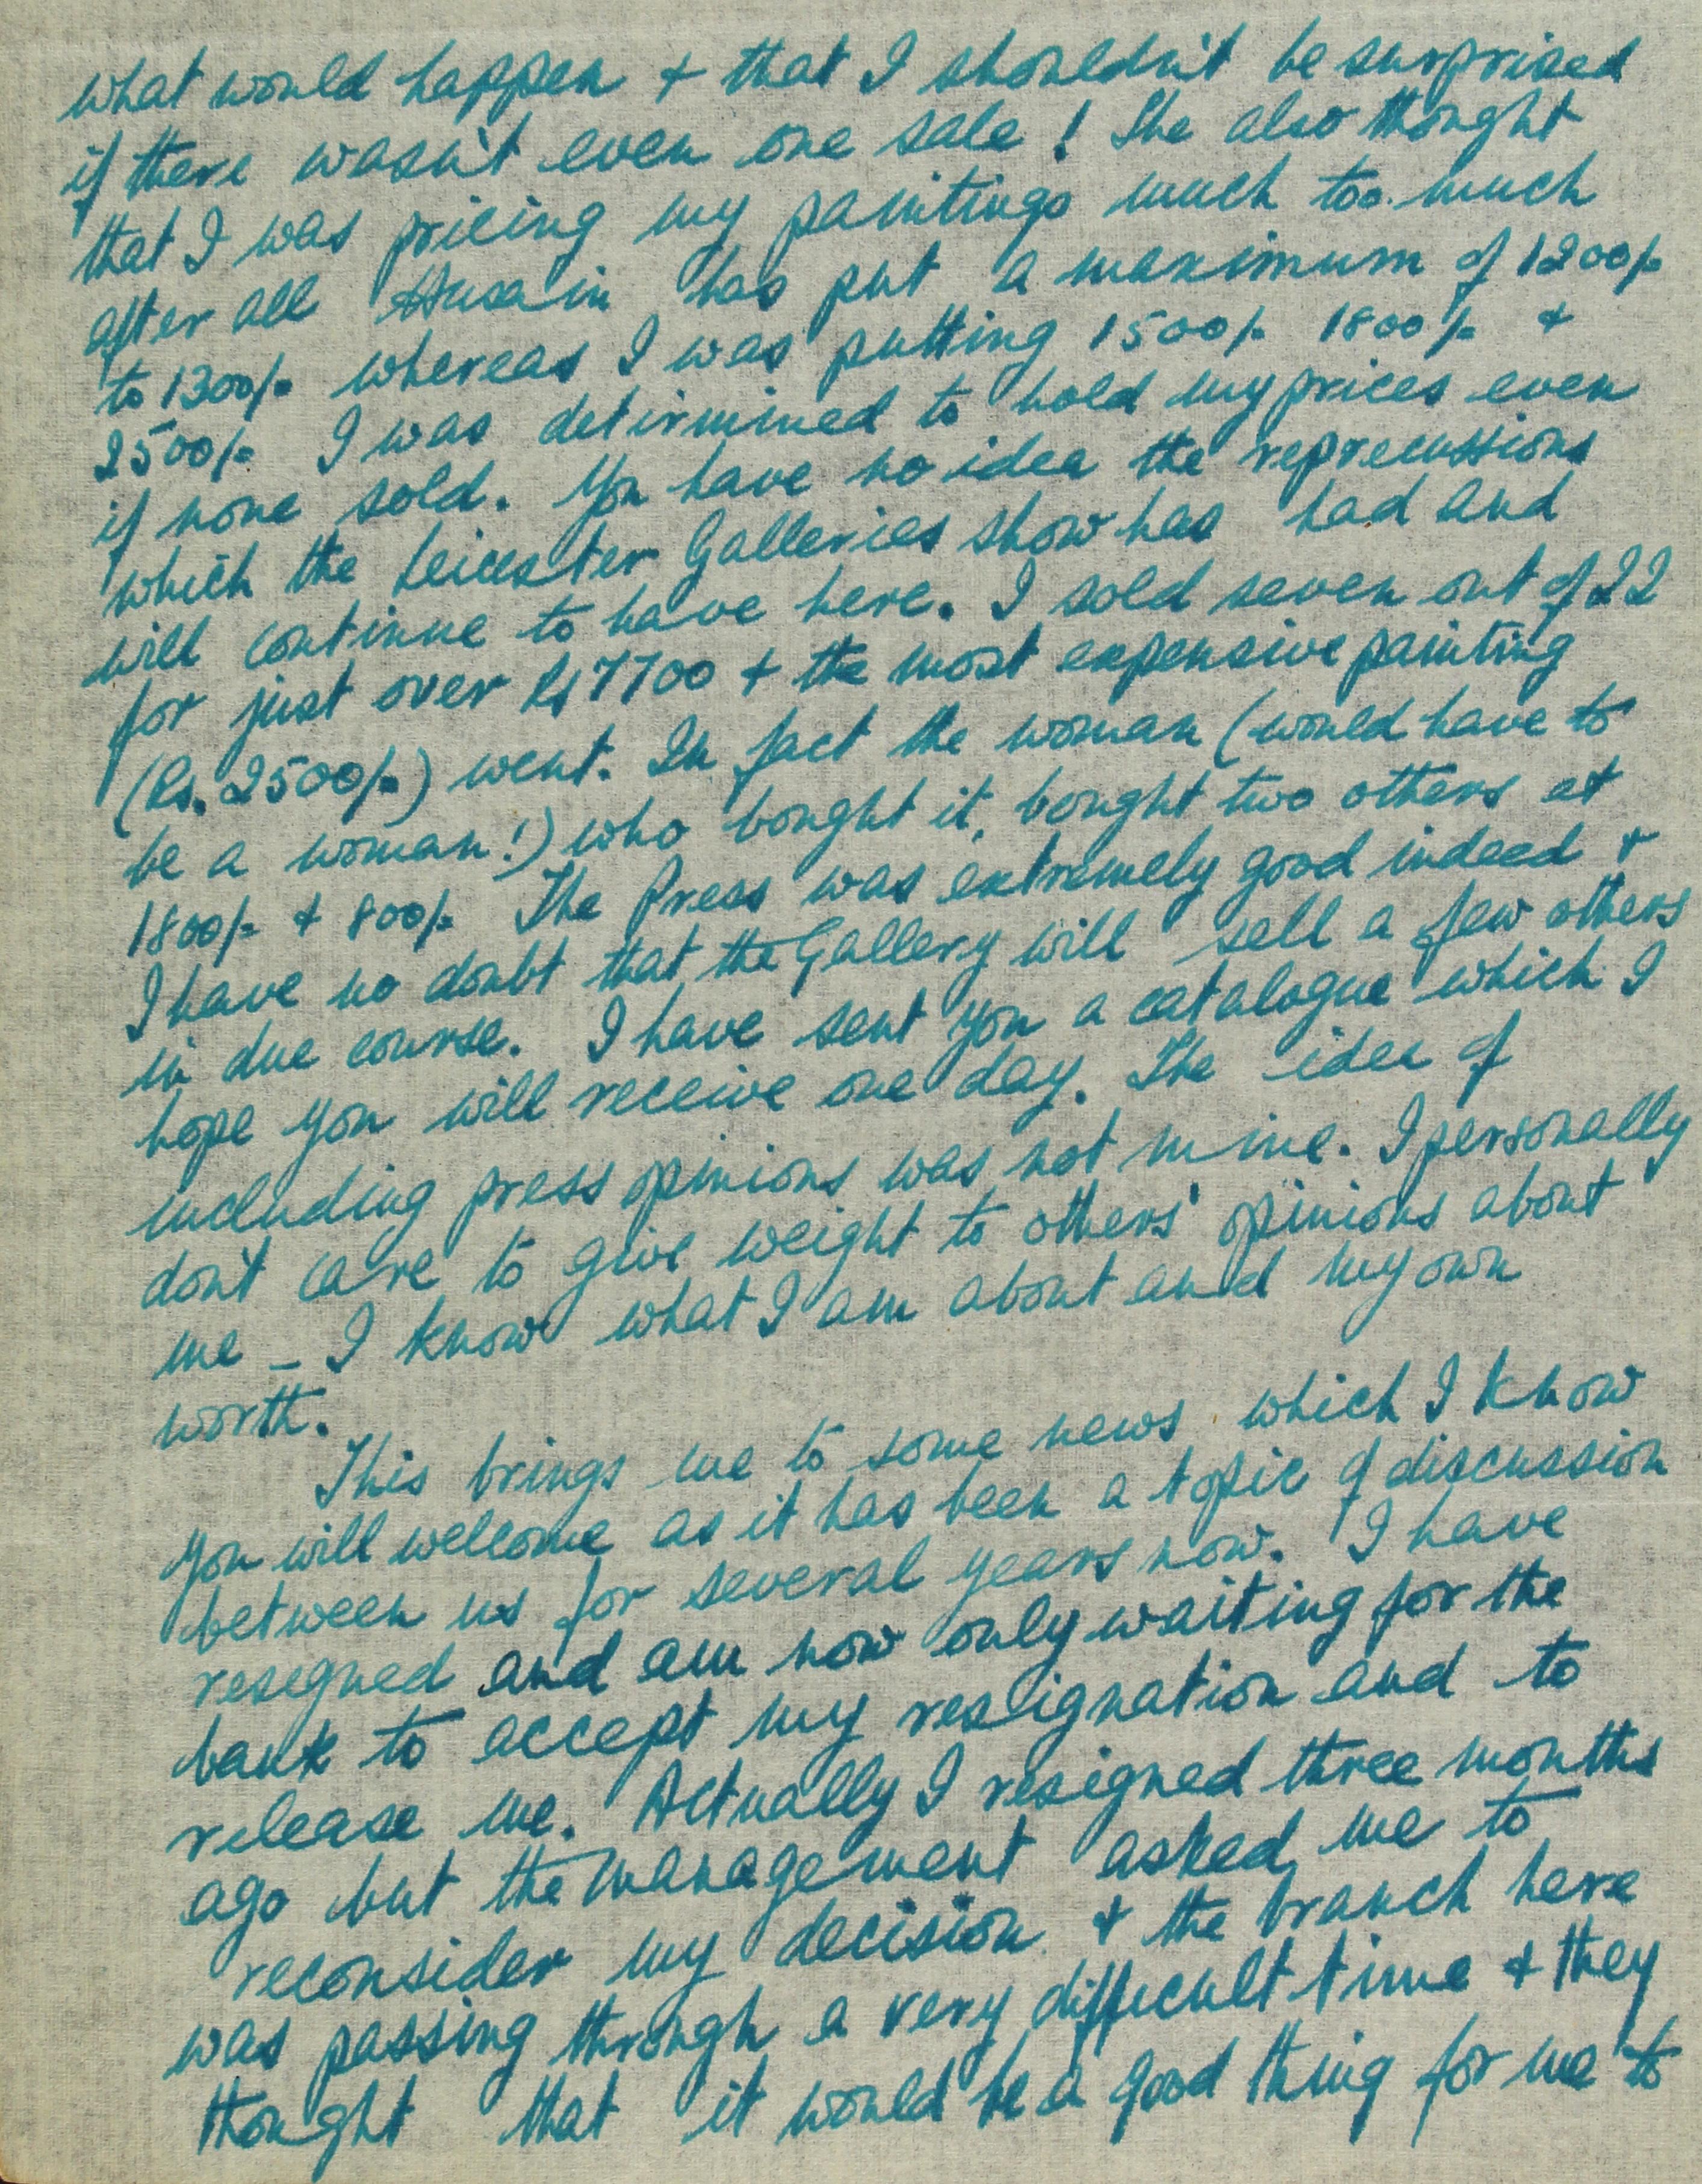 what would happen + that I shouldn't be surprised
if there wasn't even one sale! She also thought
that I was pricing my paintings much too much
after all Husain has put a maximum of 1200/-
to 1300/- whereas I was putting 1500/- 1800/- +
2500/- I was detirmined to hold my prices even
if none sold. You have no idea the reprecussions
which the Leicester Galleries show has had and
will continue to have here. I sold seven out of 22
for just over Rs 7700 + the most expensive painting
(Rs. 2500/-) went. In fact the woman (would have to
be a woman!) who bought it, bought two others at
1800/- + 800/- The Press was extremely good indeed +
I have no doubt that the Gallery will sell a few others
in due course. I have sent you a catalogue which I
hope you will receive one day. The idea of
including press opinions was not mine. I personally
don't care to give weight to others' opinions about
me – I know what I am about and my own
worth.
This brings me to some news which I know
you will wellcome as it has been a topic of discussion
between us for several years now. I have
resigned and am now only waiting for the
bank to accept my resignation and to
release me. Actually I resigned three months
ago but the management asked me to
reconsider my decision + the branch here
was passing through a very difficult time + they
thought that it would be a good thing for me to